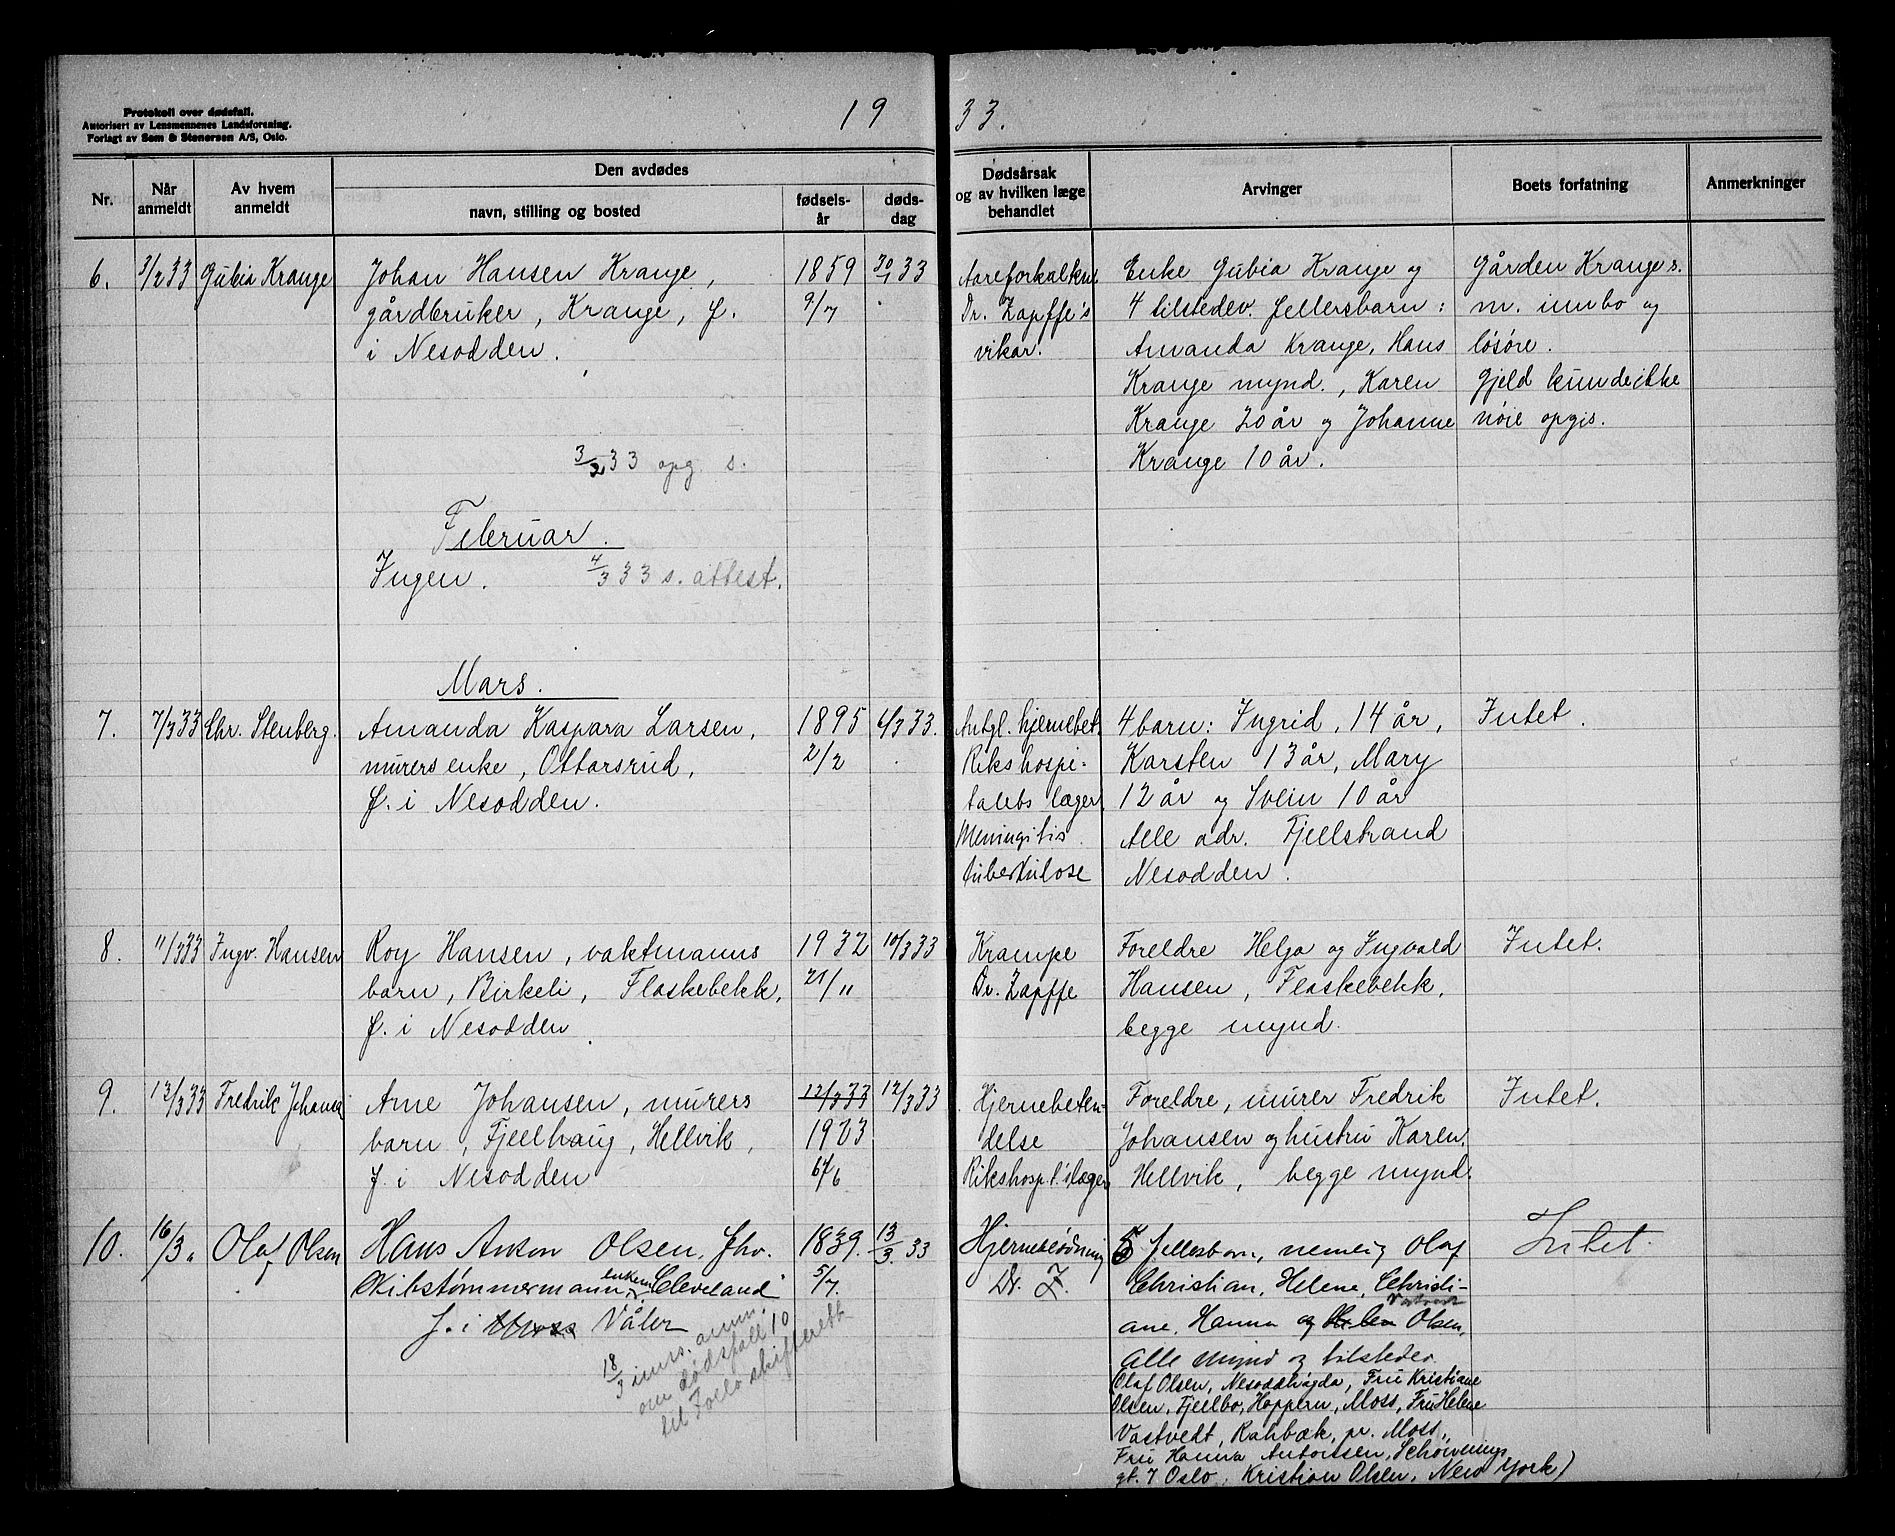 Protokoll over dødsfall.
Autorisert av Lensmennenes Landsforening.
Forlagt av Sem & Stenersen A/S, Oslo.
19 33.
Nr.
Når anmeldt
Av hvem anmeldt
Den avdødes
navn, stilling og bosted
fødsels-år
døds-dag
Dødsårsak og av hvilken læge behandlet
Arvinger
Boets forfatning
Anmerkninger
6. 3/2 33 Gubia Krange
Johan Hansen Krange,
gårdbruker, Krange, f.
i Nesodden.
1859
9/7
30/1 33
Aareforkalkn.
Dr. Zapffe's
vikar.
Enke Gubia Krange og
4 tilstedev. fellersbarn:
Amanda Krange, Hans
Krange mynd., Karen
Krange 20 år og Johanne
Krange 10 år.
Gården Krange s.
m. innbo og
løsøre.
Gjeld kunde ikke
nøie opgis.
3/2 33 opg. s.
Februar.
Ingen. 4/3 33 s. attest.
Mars.
7. 7/3 33 Chr. Stenberg.
Amanda Kaspara Larsen,
murers enke, Ottarsrud,
f. i Nesodden.
1895
2/2
6/3 33.
Antgl. hjernebet.
Rikshospi-
talets læger.
Meningitis
tuberkulose
4 barn: Ingrid, 14 år,
Karsten 13 år, Mary
12 år og Svein 10 år
Alle adr. Fjellstrand
Nesodden.
Intet.
8. 11/3 33 Ingv. Hansen
Roy Hansen, vaktmanns
barn, Birkeli, Flaskebekk,
f. i Nesodden.
1932
21/11
10/3 33
Krampe
Dr. Zapffe
Foreldre Helga og Ingvald
Hansen, Flaskebekk,
begge mynd.
Intet.
9. 13/3 33 Fredrik Johansen
Arne Johansen, murers
barn, Fjellhaug, Hellvik,
f. i Nesodden
12/3 33
1923
12/3 33
Hjernebeten-
delse
Rikshosp.t's læger
Foreldre, murer Fredrik
Johansen og hustru Karen,
Hellvik, begge mynd.
Intet.
10. 16/3 „ Olaf Olsen
Hans Anton Olsen, fhv.
skibstømmermann, enkem. „Cleveland"
f. i Moss Våler
1839.
5/7.
13/3. 33
Hjerneblødning
Dr. Z.
5 fellesbarn, nemlig Olaf
Christian, Helene, Christi-
ane, Hanna og Olsen,
Vastvedt
Alle mynd og tilsteder.
Olaf Olsen, Nesoddhøgda, Fru Kristiane
Olsen, Fjellbo, Hoppern, Moss, Fru Helene
Vastvedt, Rahbæk, pr. Moss,
Fru Hanna Antonsen, Schønnings
gt. 7 Oslo, Kristian Olsen, New York)
Intet.
18/3 inns. anm.
om dødsfall 10
til Follo skifterett